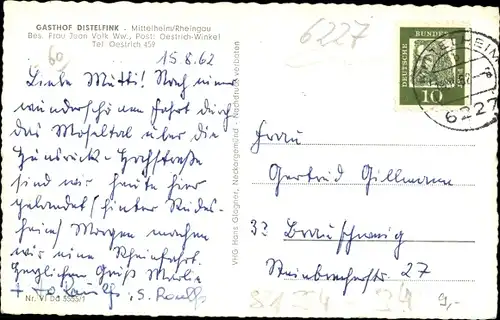 GASTHOF DISTELFINK - Mittelheim/Rheingau
Bes. Frau Joan Volk Ww., Post: Oestrich-Winkel
Tel. Oestrich 459
60
15.8.62
6227
Liebe Mutti! Nach einer
wunderschönen Fahrt durch
das Moseltal über die
Hunsrück-Hochstraße
sind wir heute hier
gelandet (hinter Rüdes-
heim) Morgen machen
wir eine Rheinfahrt.
Herzlichen Gruß
Nr. VI
VHG Hans Glogner, Neckargemünd - Nachdruck verboten
DEUTSCHE
BUNDES
10
HEIM
6227
Frau
Gertrud Gillmann
33 Braunschweig
Steinbrechstr. 27
9,-